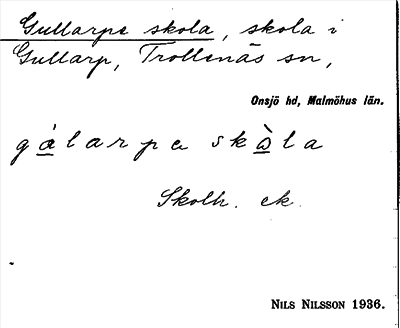 Gullarps skola, skola i
Gullarp, Trollenäs sn,
Onsjö hd, Malmöhus län.
gálarps skòla
Skolh. ek.
NILS NILSSON 1936.